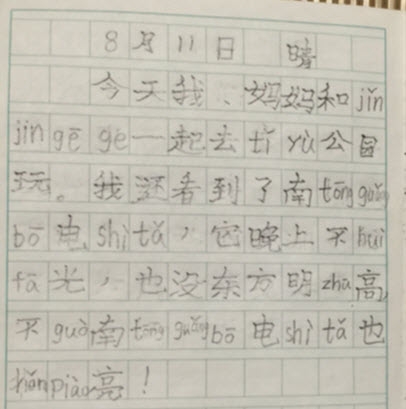 8月11日 晴
今天我、妈妈和jǐn
jǐn gē ge一起去tǐ yù公园
玩。我还看到了南tōng guǎng
bō电shì tǎ，它晚上不huì
fā光，也没东方明zhū高，
不guò南tōng guǎng bō电shì tǎ也
hěn piào亮！